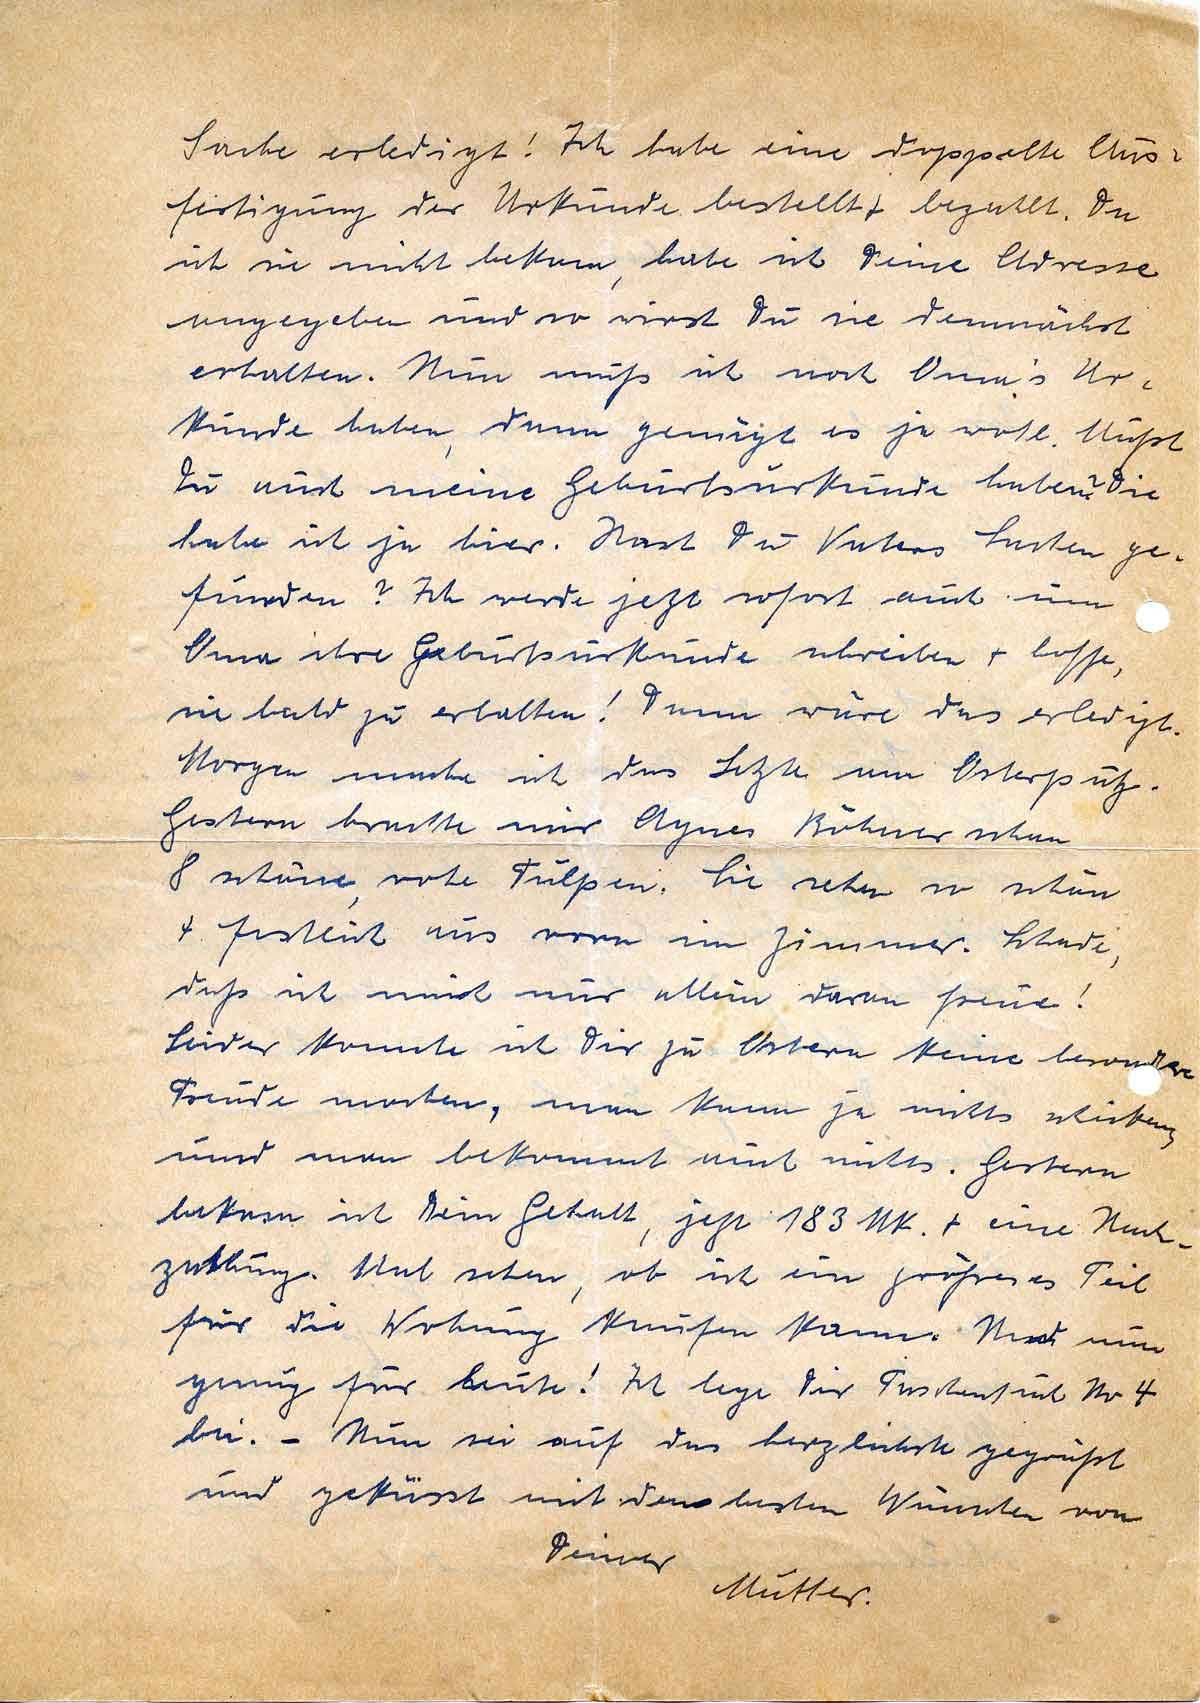 Sache erledigt! Ich habe eine doppelte Aus-
fertigung der Urkunde bestellt + bezahlt. Da
ich sie nicht bekam, habe ich Deine Adresse
angegeben und so wirst Du sie demnächst
erhalten. Nun muß ich noch Oma's Ur-
kunde haben, dann genügt es ja wohl. Mußt
Du auch meine Geburtsurkunde haben? Die
habe ich ja hier. Hast Du Vaters Sachen ge-
funden? Ich werde jetzt sofort auch um
Oma ihre Geburtsurkunde schreiben + hoffe,
sie bald zu erhalten! Dann wäre das erledigt.
Morgen mache ich das Letzte am Osterputz.
Gestern brachte mir Agnes Böhner schon
8 schöne, rote Tulpen. Sie sehen so schön
+ festlich aus vorn im Zimmer. Schade,
daß ich mich nur allein daran freue!
Leider konnte ich Dir zu Ostern keine besondere
Freude machen, man kann ja nichts schicken,
und man bekommt auch nichts. Gestern
bekam ich Dein Gehalt, jetzt 183 MK. + eine Nach-
zahlung. Mal sehen, ob ich ein größeres Teil
für die Wohung kaufen kann. Und nun
genug für heute! Ich lege Dir Taschentuch No 4
bei. - Nun sei auf das herzlichste gegrüßt
und geküsst mit den besten Wünschen von
Deiner
Mutter.